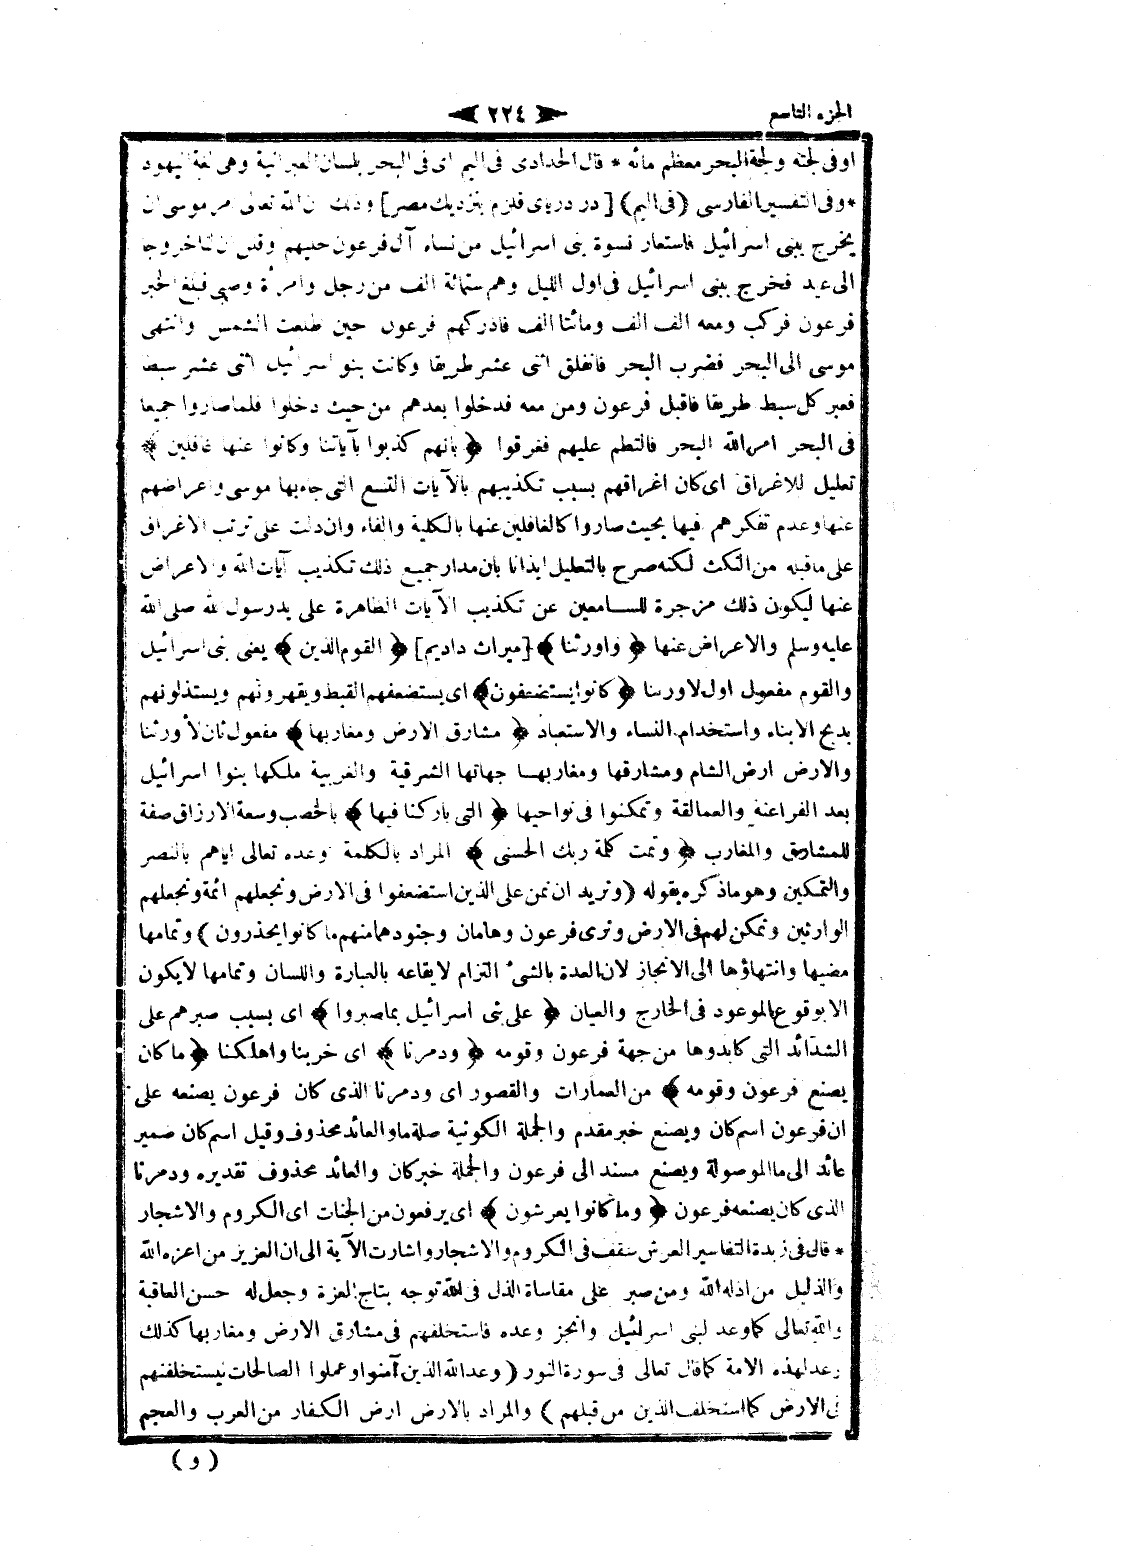 الجزء التاسع
٢٢٤
او فى لجته ولجة البحر معظم مائه * قال الحدادى فى اليم اى فى البحر بلسان العبرانية وهى لغة اليهود
* وفى التفسير الفارسى (فى اليم) [در درياى قلزم بنزديك مصر] وذلك ان الله تعالى امر موسى ان
يخرج ببنى اسرائيل فاستعار نسوة بنى اسرائيل من نساء آل فرعون حليهم وقلن ان لنا خروجا
الى عيد فخرج ببنى اسرائيل فى اول الليل وهم ستمائة الف من رجل وامرأة وصبى فبلغ الخبر
فرعون فركب ومعه الف الف ومائتا الف فادركهم فرعون حين طلعت الشمس وانتهى
موسى الى البحر فضرب البحر فانفلق اثنى عشر طريقا وكانت بنو اسرائيل اثنى عشر سبطا
فعبر كل سبط طريقا فاقبل فرعون ومن معه فدخلوا بعدهم من حيث دخلوا فلما صاروا جميعا
فى البحر امر الله البحر فالتطم عليهم فغرقوا ﴿ بانهم كذبوا بآياتنا وكانوا عنها غافلين ﴾
تعليل للاغراق اى كان اغراقهم بسبب تكذيبهم بالآيات التسع التى جاء بها موسى واعراضهم
عنها وعدم تفكرهم فيها بحيث صاروا كالغافلين عنها بالكلية والفاء وان دلت على ترتب الاغراق
على ما قبله من النكث لكنه صرح بالتعليل ايذانا بان مدار جميع ذلك تكذيب آيات الله والاعراض
عنها ليكون ذلك مزجرة للسامعين عن تكذيب الآيات الظاهرة على يد رسول الله صلى الله
عليه وسلم والاعراض عنها ﴿ واورثنا ﴾ [ميراث داديم] ﴿ القوم الذين ﴾ يعنى بنى اسرائيل
والقوم مفعول اول لاورثنا ﴿ كانوا يستضعفون ﴾ اى يستضعفهم القبط ويقهرونهم ويستذلونهم
بذبح الابناء واستخدام النساء والاستعباد ﴿ مشارق الارض ومغاربها ﴾ مفعول ثان لأورثنا
والارض ارض الشام ومشارقها ومغاربها جهاتها الشرقية والغربية ملكها بنوا اسرائيل
بعد الفراعنة والعمالقة وتمكنوا فى نواحيها ﴿ التى باركنا فيها ﴾ بالخصب وسعة الارزاق صفة
للمشارق والمغارب ﴿ وتمت كلمة ربك الحسنى ﴾ المراد بالكلمة وعده تعالى اياهم بالنصر
والتمكين وهو ما ذكره بقوله (ونريد ان نمن على الذين استضعفوا فى الارض ونجعلهم ائمة ونجعلهم
الوارثين ونمكن لهم فى الارض ونرى فرعون وهامان وجنودهما منهم ما كانوا يحذرون) وتمامها
مضيها وانتهاؤها الى الانجاز لان العدة بالشئ التزام لايقاعه بالعبارة واللسان وتمامها لا يكون
الا بوقوع الموعود فى الخارج والعيان ﴿ على بنى اسرائيل بما صبروا ﴾ اى بسبب صبرهم على
الشدائد التى كابدوها من جهة فرعون وقومه ﴿ ودمرنا ﴾ اى خربنا واهلكنا ﴿ ما كان
يصنع فرعون وقومه ﴾ من العمارات والقصور اى ودمرنا الذى كان فرعون يصنعه على
ان فرعون اسم كان ويصنع خبر مقدم والجملة الكونية صلة ما والعائد محذوف وقيل اسم كان ضمير
عائد الى ما الموصولة ويصنع مسند الى فرعون والجملة خبر كان والعائد محذوف تقديره ودمرنا
الذى كان يصنعه فرعون ﴿ وما كانوا يعرشون ﴾ اى يرفعون من الجنات اى الكروم والاشجار
* قال فى زبدة التفاسير العرش سقف فى الكروم والاشجار واشارت الآية الى ان العزيز من اعزه الله
والذليل من اذله الله ومن صبر على مقاساة الذل فى الله توجه بتاج العزة وجعل له حسن العاقبة
والله تعالى كما وعد لبنى اسرائيل وانجز وعده فاستخلفهم فى مشارق الارض ومغاربها كذلك
وعد لهذه الامة كما قال تعالى فى سورة النور (وعد الله الذين آمنوا وعملوا الصالحات ليستخلفنهم
فى الارض كما استخلف الذين من قبلهم) والمراد بالارض ارض الكفار من العرب والعجم
(و)